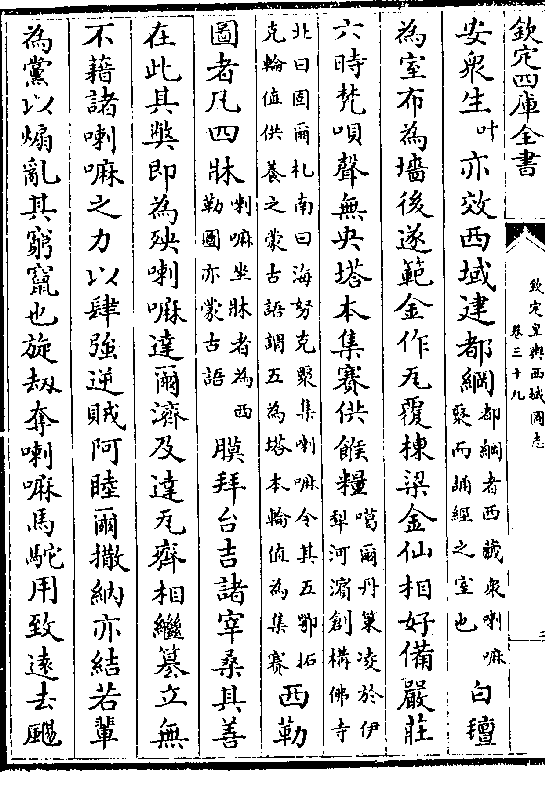 欽定四庫全書
欽定皇輿西域圖志
卷三十九
安衆生叶亦效西域建都綱都綱者西藏衆喇嘛聚而誦經之室也白氊
為室布為墻後遂範金作瓦覆棟梁金仙相好備嚴莊
六時梵唄聲無央塔本集賽供餱糧噶爾丹策凌於伊犁河濵創構佛寺
北曰固爾札南曰海努克聚集喇嘛令其五鄂拓克輪值供養之蒙古語謂五為塔本輪值為集賽西勒
圖者凡四牀喇嘛坐牀者為西勒圖亦蒙古語膜拜台吉諸宰桑其善
在此其獘即為殃喇嘛達爾濟及達瓦齊相繼簒立無
不藉諸喇嘛之力以肆強逆賊阿睦爾撒納亦結若輩
為黨以煽亂其窮竄也旋刼奪喇嘛馬駝用致遠去颺